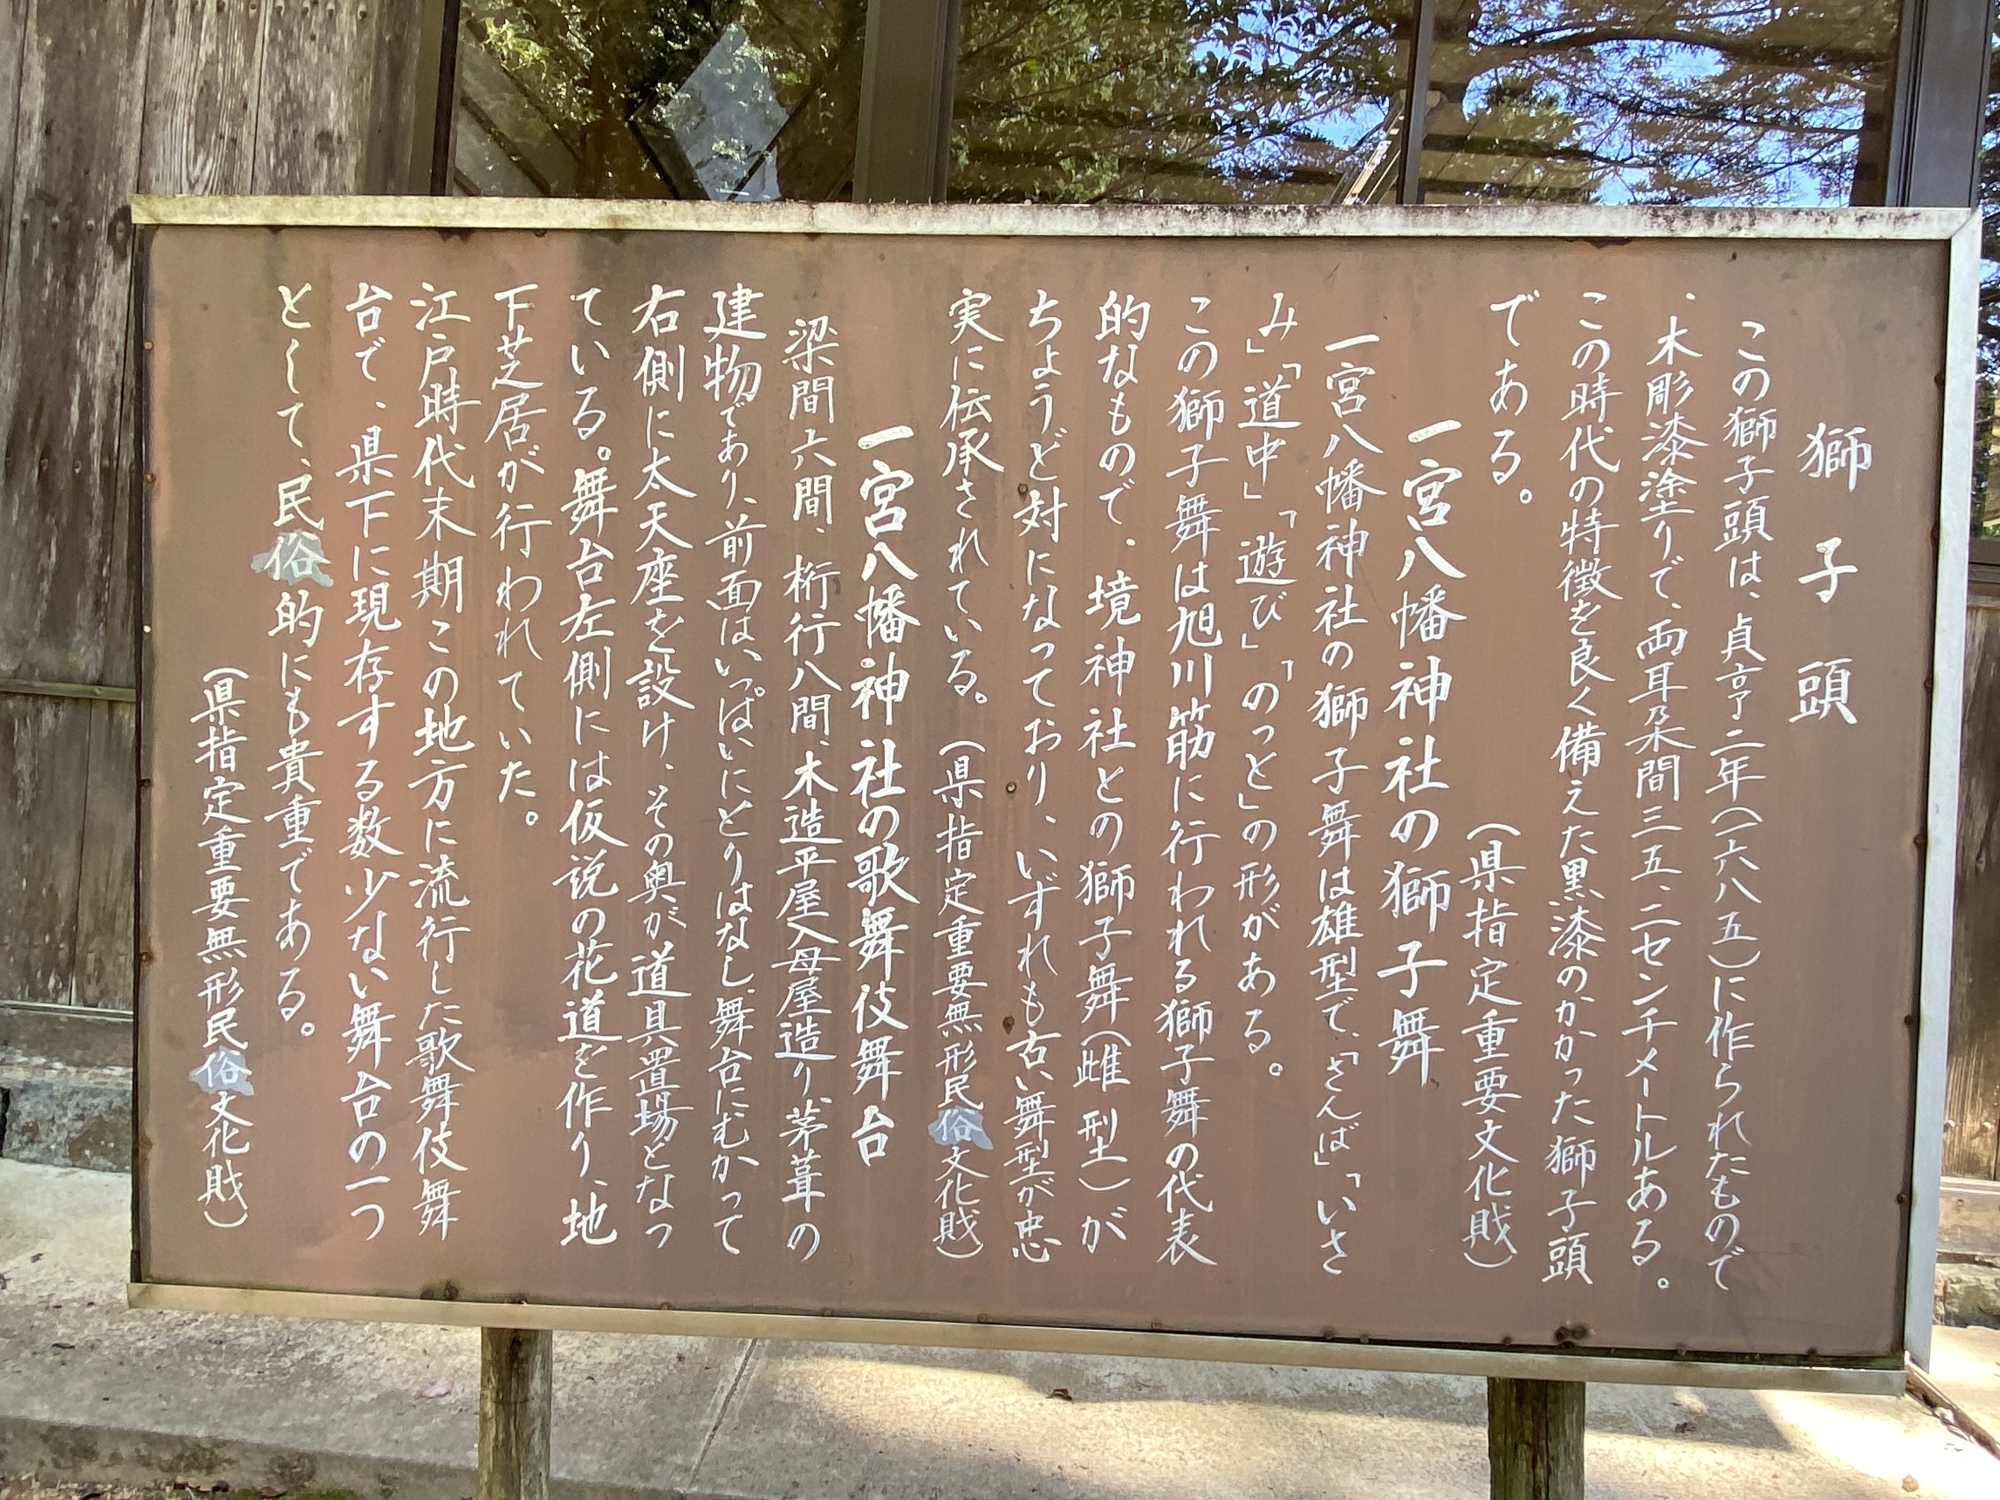 獅子頭
この獅子頭は、貞亨二年(一六八五)に作られたもので
、木彫漆塗りで、両耳朶間三五、二センチメートルある。
この時代の特徴を良く備えた黒漆のかかった獅子頭
である。
(県指定重要文化財)
一宮八幡神社の獅子舞
一宮八幡神社の獅子舞は雄型で、「さんば」「いさ
み」「道中」「遊び」「のっと」の形がある。
この獅子舞は旭川筋に行われる獅子舞の代表
的なもので、境神社との獅子舞(雌型)が
ちょうど対になっており、いずれも古い舞型が忠
実に伝承されている。(県指定重要無形民俗文化財)
一宮八幡神社の歌舞伎舞台
梁間六間、桁行八間、木造平屋入母屋造り、茅葺の
建物であり、前面はいっぱいにとりはなし、舞台にむかって
右側に太天座を設け、その奥が道具置場となっ
ている。舞台左側には仮説の花道を作り、地
下芝居が行われていた。
江戸時代末期この地方に流行した歌舞伎舞
台で、県下に現存する数少ない舞台の一つ
として、民俗的にも貴重である。
(県指定重要無形民俗文化財)